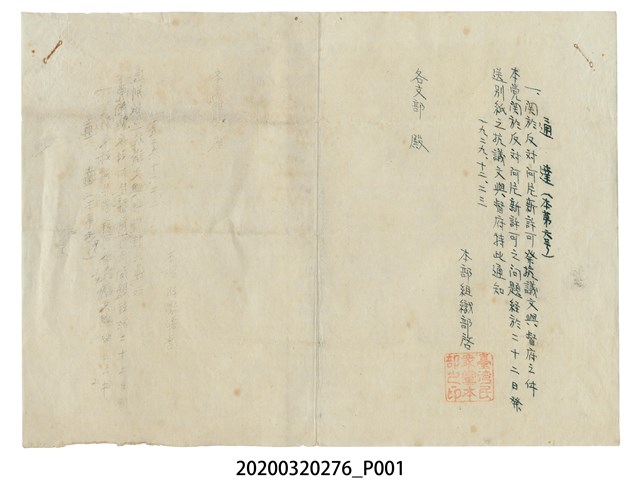 通達(本第六号)
一、関於反対阿片新許可発抗議文與督府之件
本党関於反対阿片新許可之问題経於二十二日発
送別紙之抗議文與督府特此通知
一九二九、十二、二三
本部組織部啓
臺湾民
衆黨本
部之印
各支部 殿
20200320276_P001